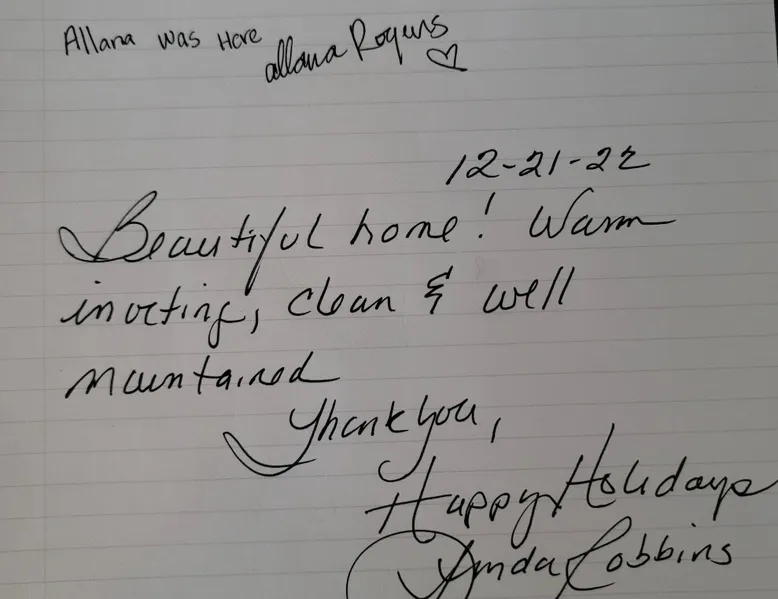 Allana was Here
allana Rogers
12-21-22
Beautiful home! Warm
inviting, clean & well
maintained
Thank you,
Happy Holidays